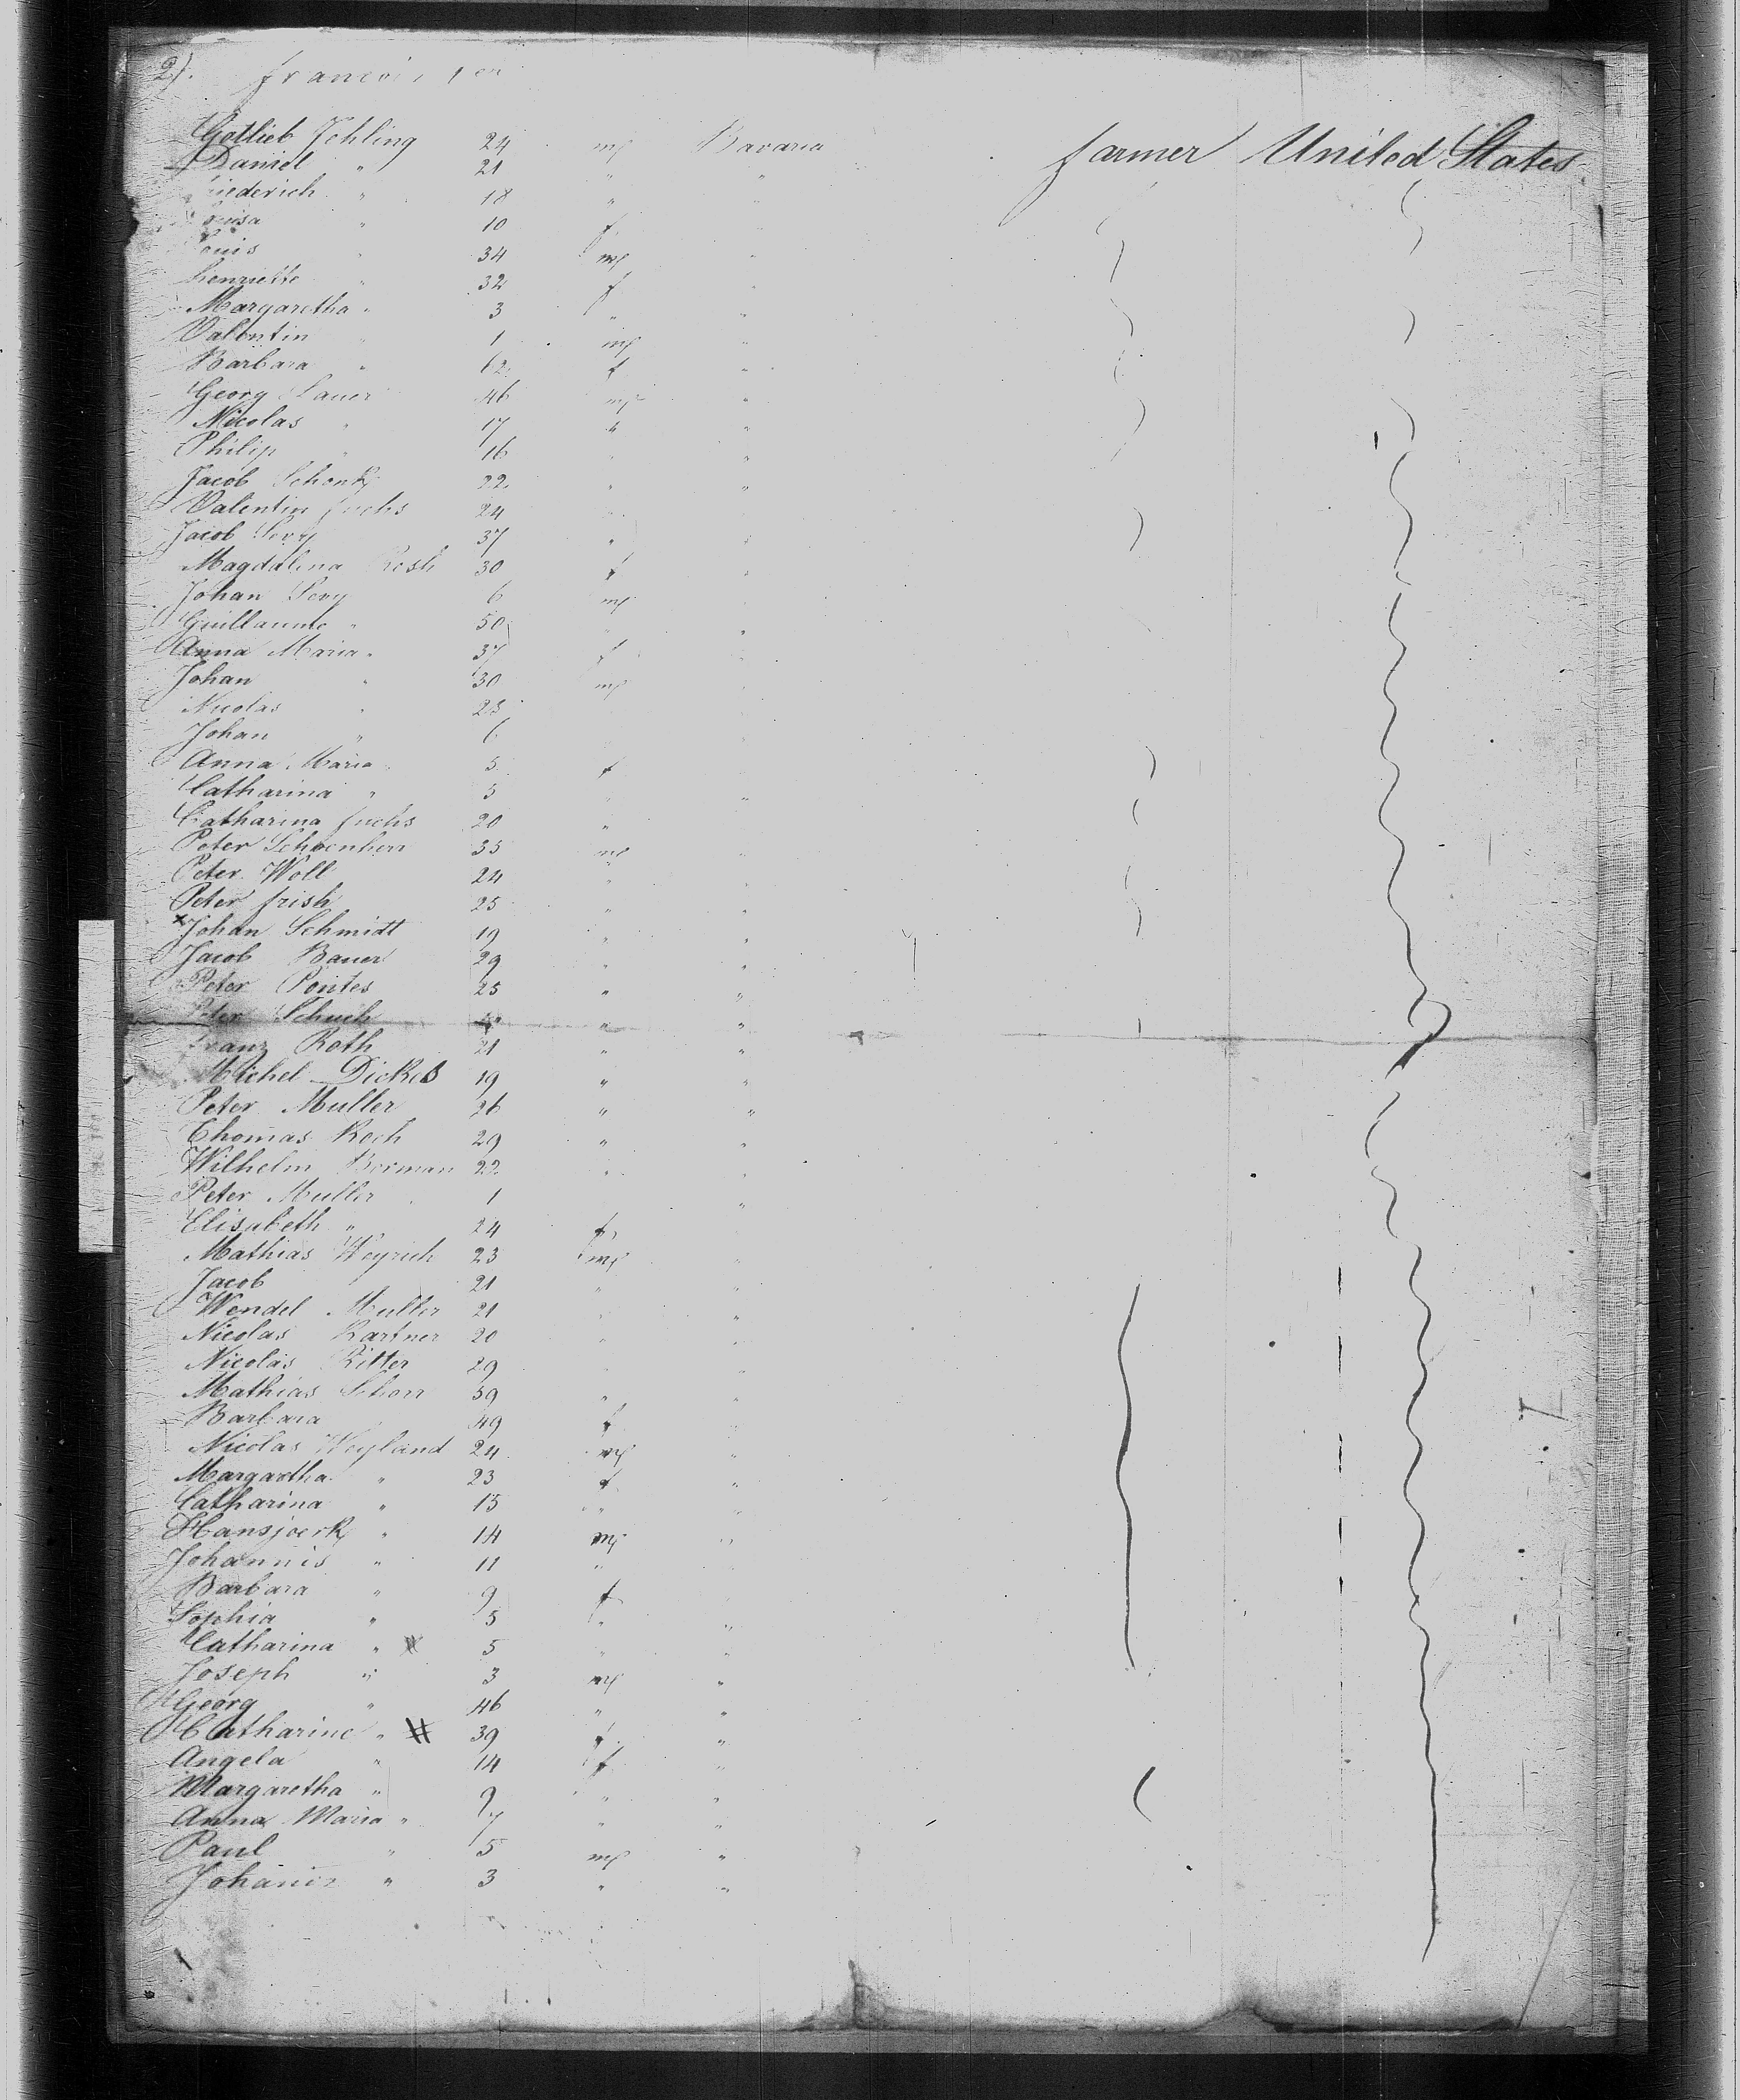 2).
Gotlieb Jehling 24 m Bavaria farmer United States
Daniel " 21 " "
iederich " 18 " "
ouisa " 10 f "
Louis " 34 m "
henriette " 32 f "
Margaretha " 3 " "
Valentin " 1 m "
Barbara " 62 f "
Georg Lauer 46 m "
Nicolas " 17 " "
Philip " 16 " "
Jacob 22 " "
Valentin fuchs 24 "
Jacob 37 " "
Magdalina 30 f "
Johan Levy 6 m
Guillaume " 50 " "
Anna Maria " 37 f "
Johan " 30 m "
Nicolas " 23
Johan " 6 "
Anna Maria " 5 f
Catharina " 3 " "
Catharina fuchs 20 "
Peter 35 m "
Peter Woll 24 " "
Peter frish 25 " "
x Johan Schmidt 19 " "
Jacob Bauer 29 " "
Peter Pontes 25 " "
Peter Schuch " "
Franz Roth 21 " "
Michel Dickes 19 " "
Peter Muller 26 " "
Thomas Koch 29 " "
Wilhelm Borman 22 " "
Peter Muller 1 "
Elisabeth " 24 f
Mathias Weyrich 23 m "
Jacob 21 " "
Wendel Muller 21 " "
Nicolas Kartner 20 " "
Nicolas Ritter 29 " "
Mathias Schorr 59 " "
Barbara 49 f "
Nicolas Weyland 24 m "
Margartha " 23 f "
Catharina " 15 "
Hansjoerk " 14 m "
Johannis " 11 "
Barbara " 9 f
Sophia " 5 " "
Catharina " 5 " "
Joseph " 3 m "
Georg " 46 " "
Catharine " 39 f "
Angela " 14 f "
Margaretha " 9 " "
Anna Maria " 7 " "
Paul " 5 m "
" 3 " "